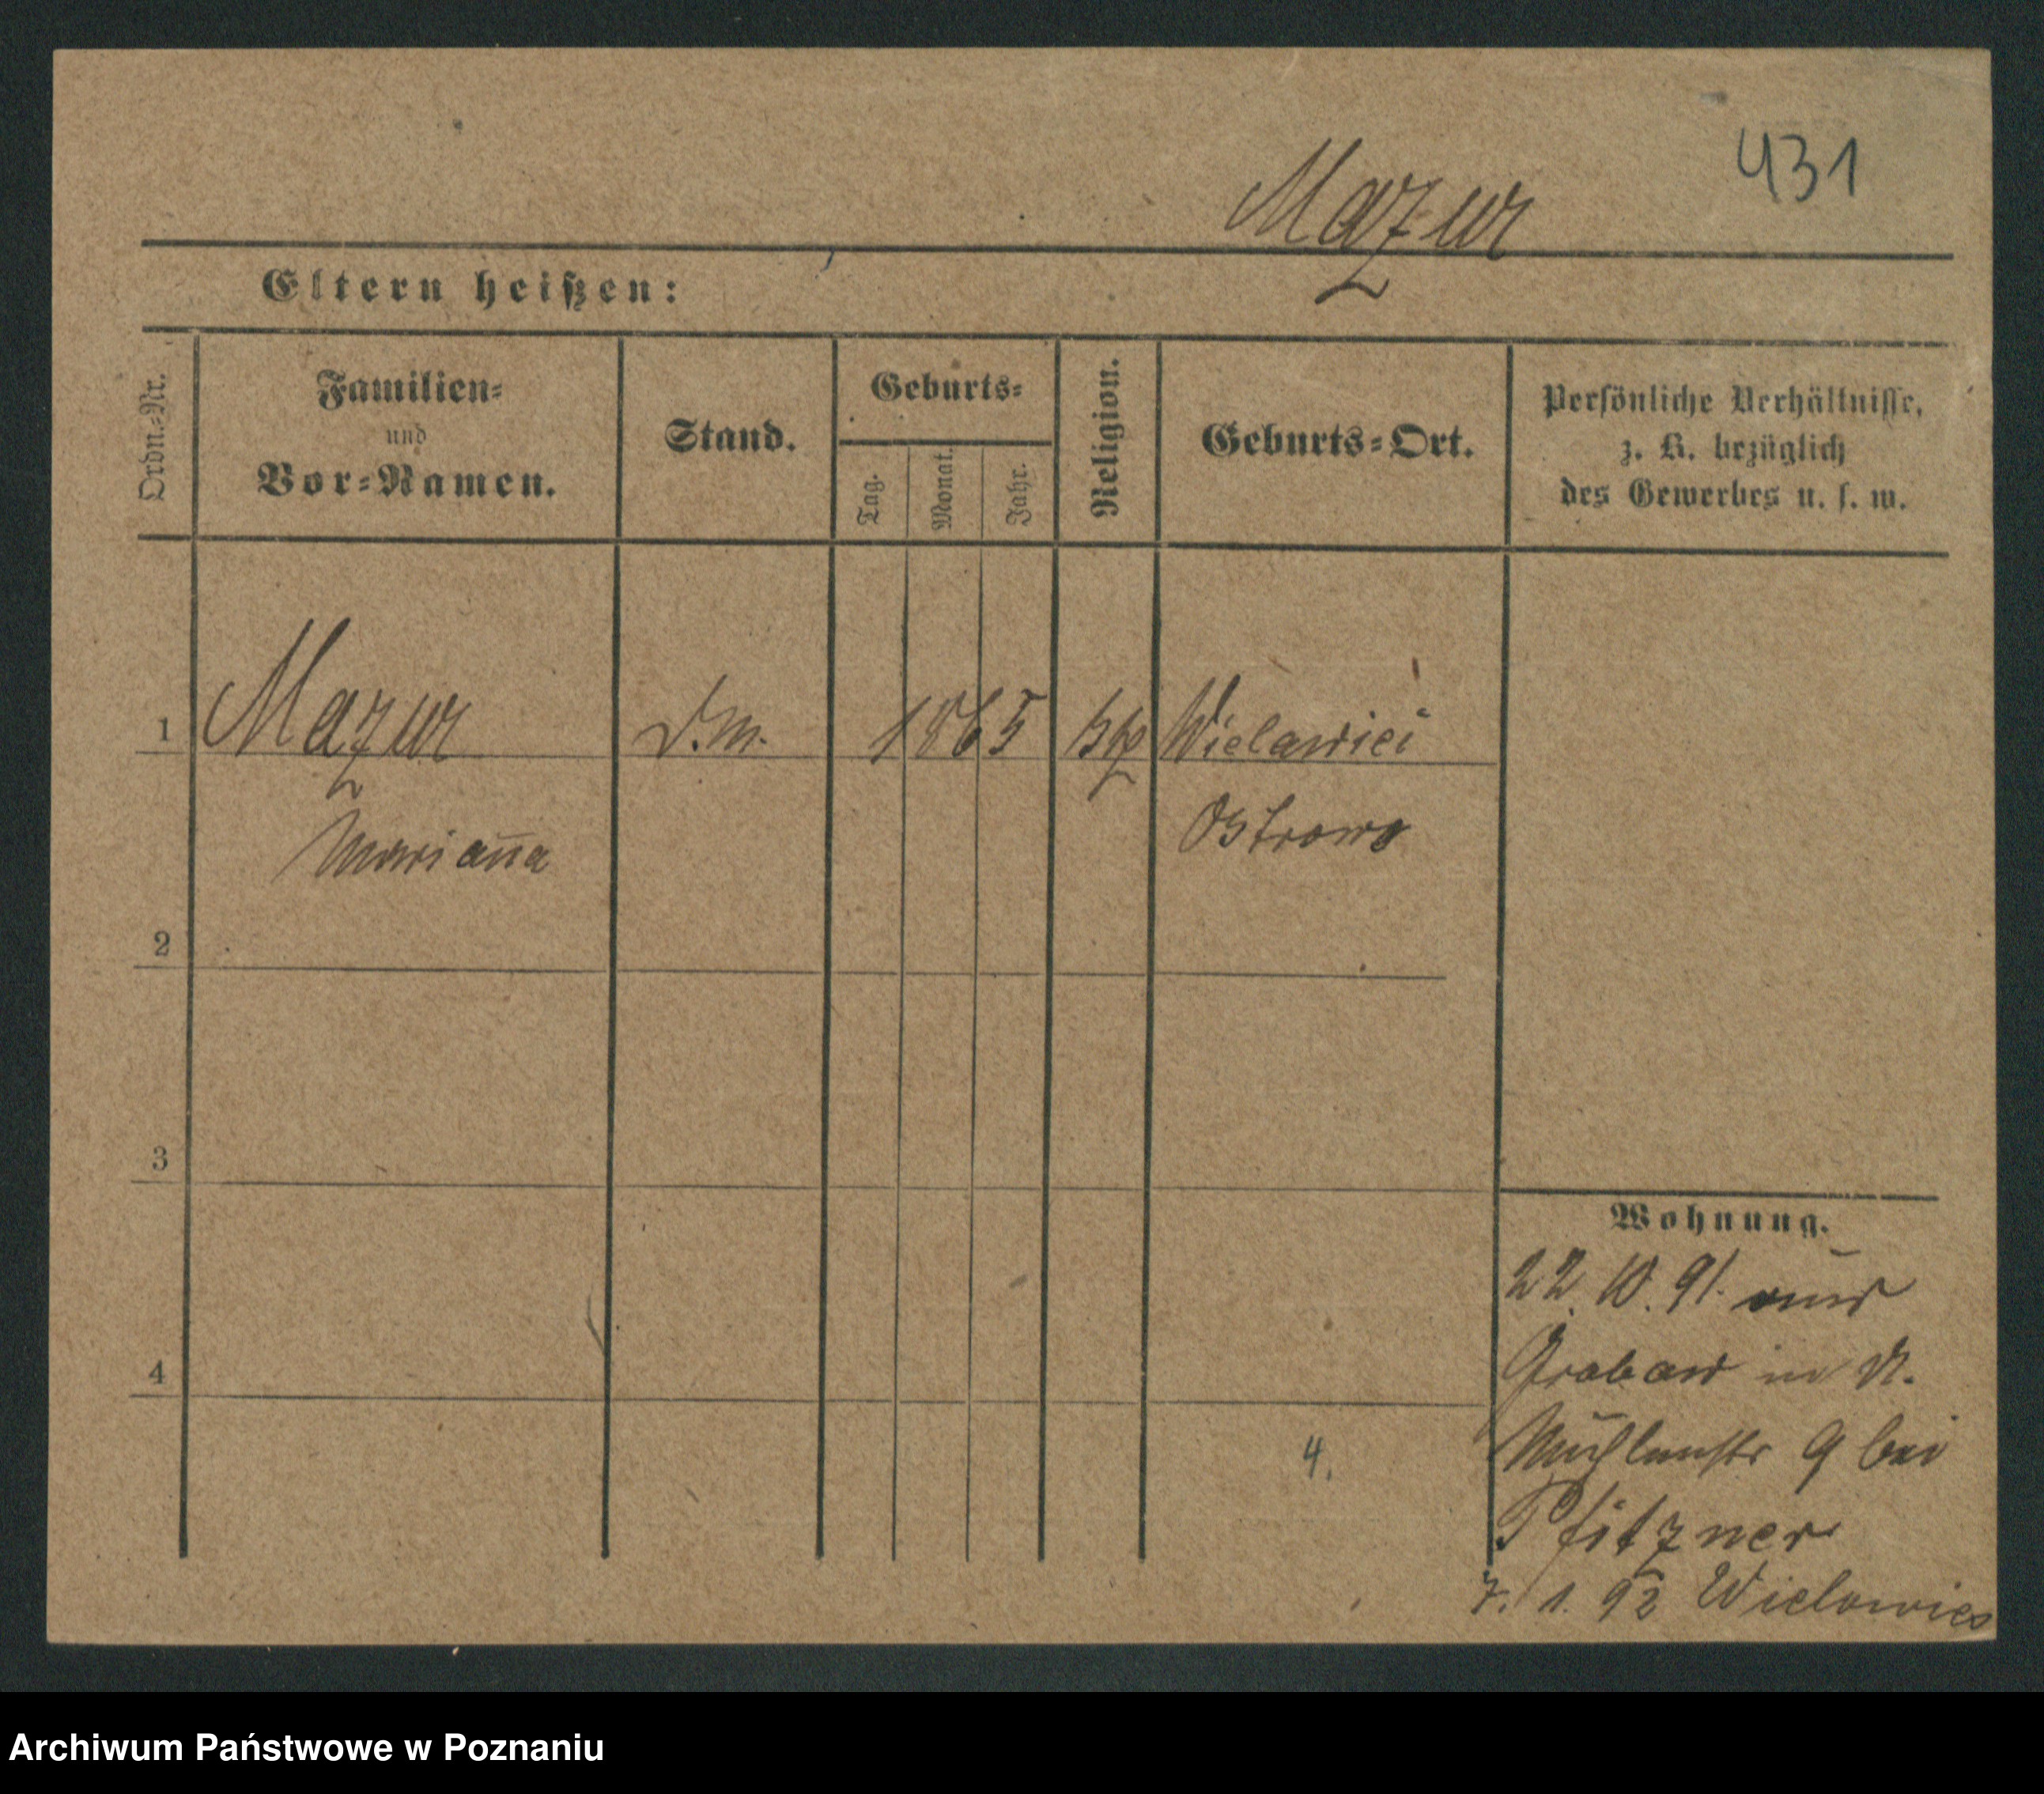 431
Mazur
Eltern heißen:
Ordn.-Nr.
Familien-
und
Vor-Namen.
Stand.
Geburts-
Tag.
Monat.
Jahr.
Religion.
Geburts-Ort.
Persönliche Verhältnisse,
z. B. bezüglich
des Gewerbes u. s. w.
1
Mazur
D.M.
1865
kth
Wielawici
Mariana
Ostrowo
2
3
4
4.
Wohnung.
22. 10. 91.
Grabow in
Mühlenstr 9 bei
Pfitzner
7. 1. 92 Wielowies
Archiwum Państwowe w Poznaniu